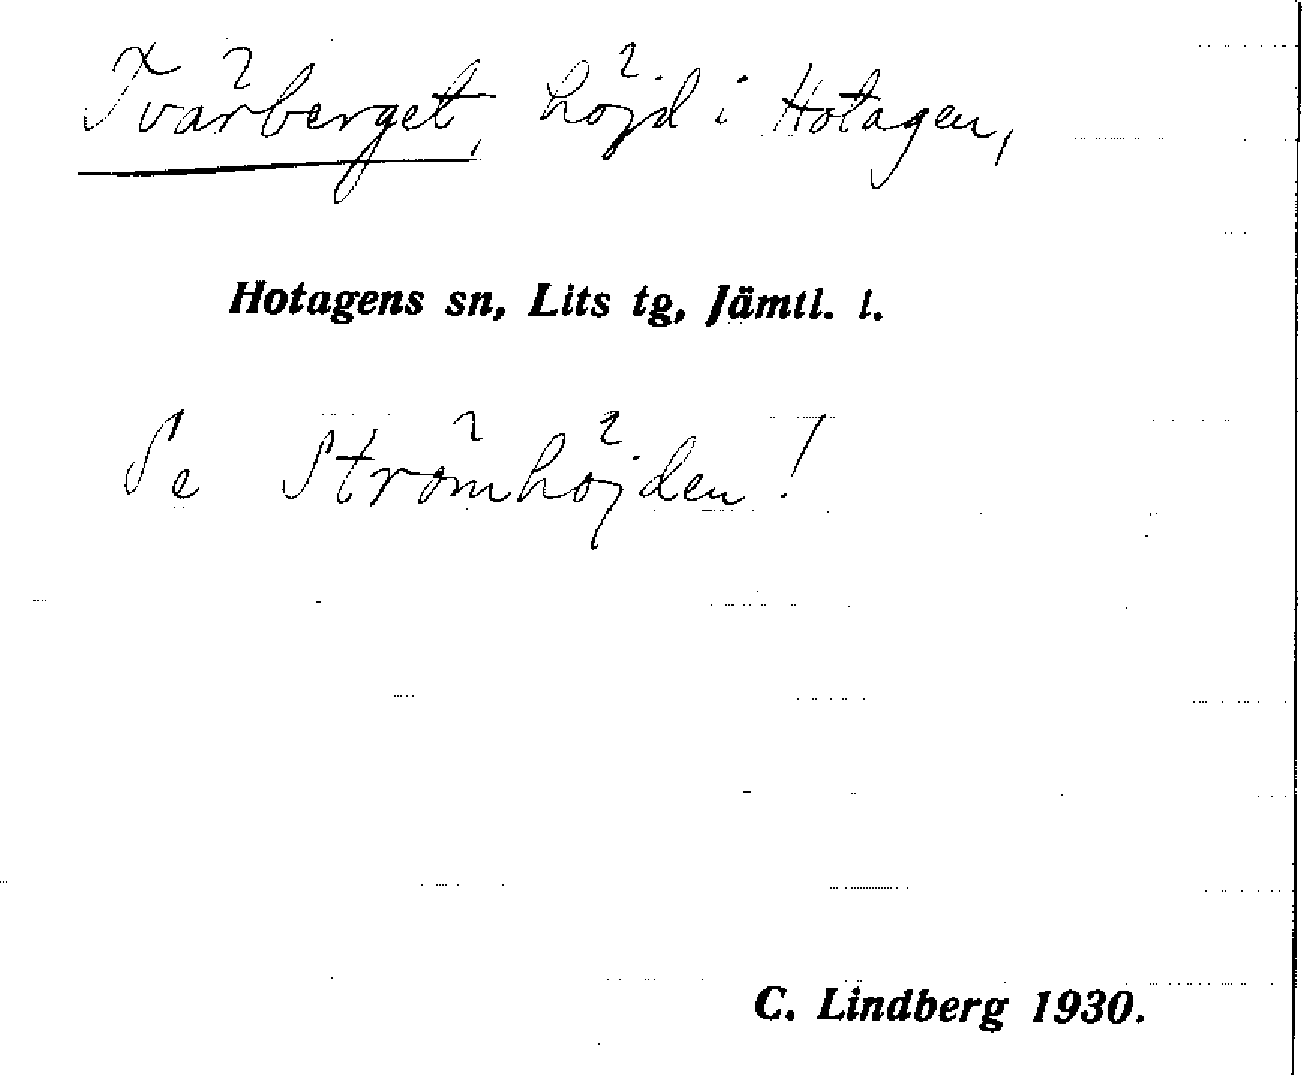 Tvärberget, höjd i Hotagen,
Hotagens sn, Lits tg, Jämtl. l.
Se Strömhöjden!
C. Lindberg 1930.